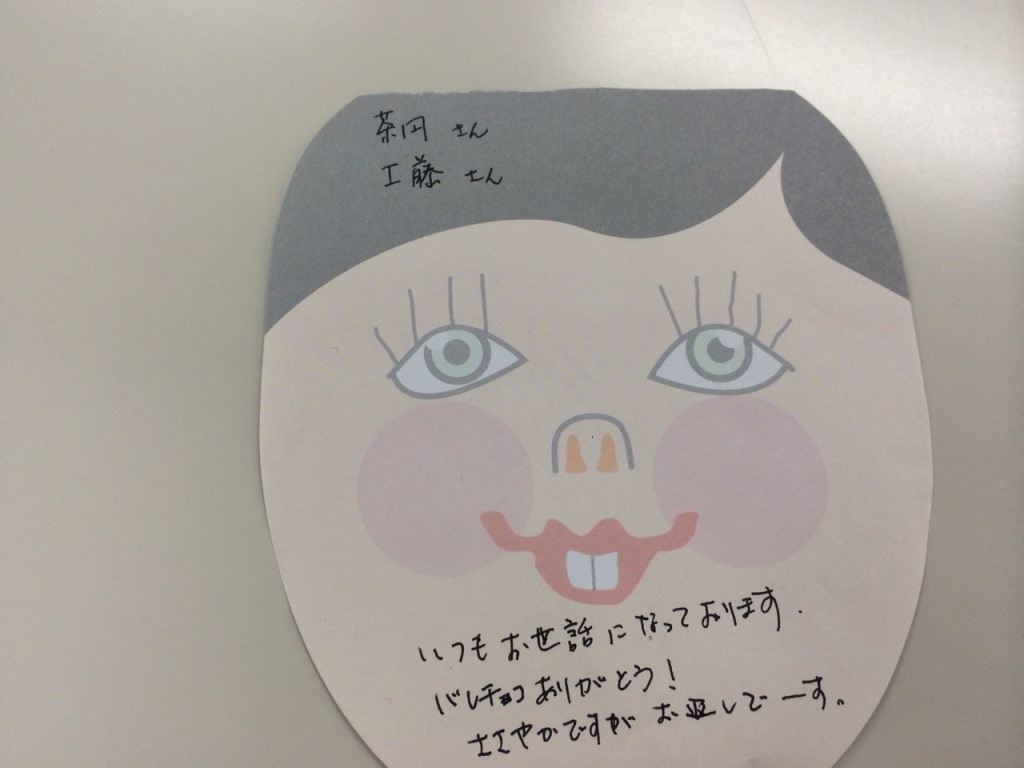 茶円 さん
工藤 さん
いつもお世話になっております.
バレチョコありがとう!
ささやかですが お返しでーす。